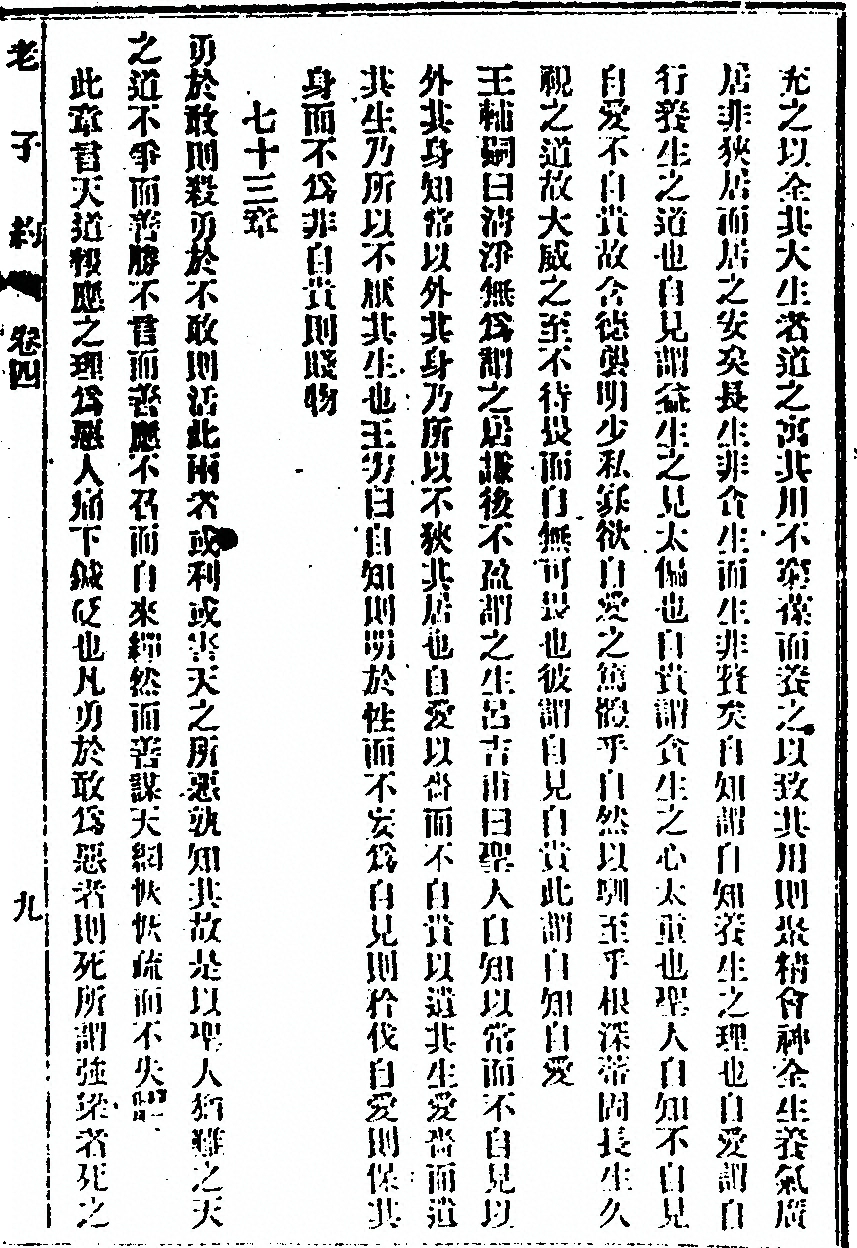 充之以全其大生者道之寓其用不窮葆而養之以致其用則聚精會神全生養氣廣
居非狹居而居之安矣長生非貪生而生非賢矣自知謂自知養生之理也自愛謂自
行養生之道也自見謂益生之見太偏也自貴謂貪生之心太重也聖人自知不自見
自愛不自貴故含德襲明少私寡欲自愛之篤體乎自然以馴至乎根深蒂固長生久
視之道故大威之至不待畏而自無可畏也彼謂自見自貴此謂自知自愛
王輔嗣曰清淨無為謂之居謙後不盈謂之生呂吉甫曰聖人自知以常而不自見以
外其身知常以外其身乃所以不狹其居也自愛以嗇而不自貴以遺其生愛嗇而遺
其生乃所以不厭其生也王雱曰自知則明於性而不妄為自見則矜伐自愛則保其
身而不為非自貴則賤物
七十三章
勇於敢則殺勇於不敢則活此兩者或利或害天之所惡孰知其故是以聖人猶難之天
之道不爭而善勝不言而善應不召而自來繟然而善謀天網恢恢疏而不失
此章言天道報應之理為惡人痛下鍼砭也凡勇於敢為惡者則死所謂強梁者死之
老子約 卷四
九